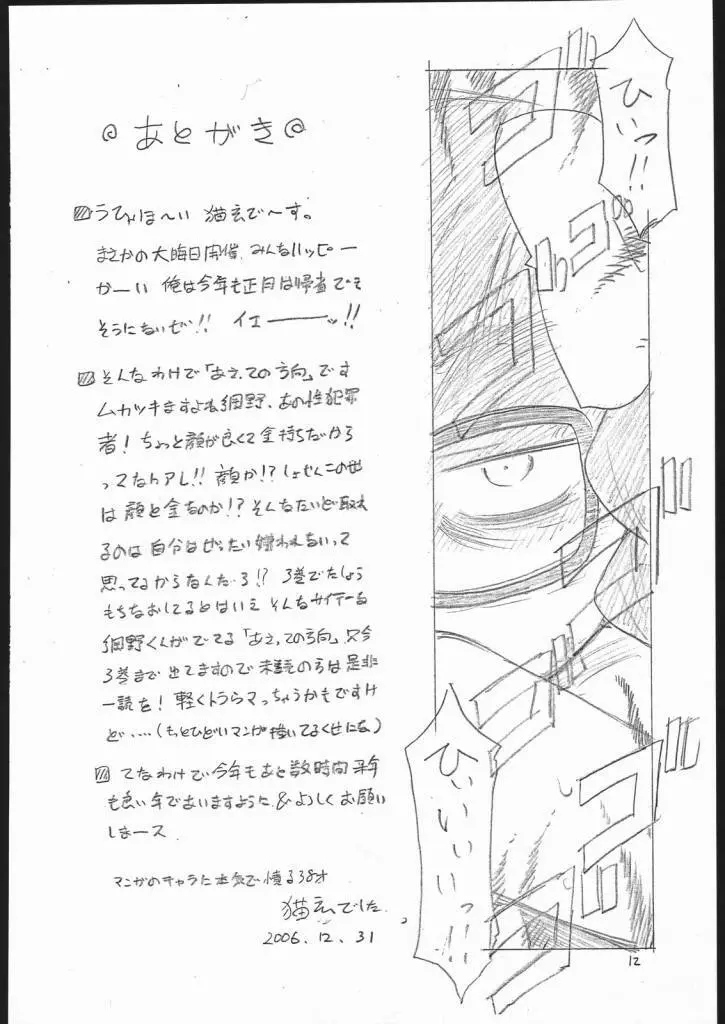 あとがき
うひょほ〜い 猫玄で〜す。
まさかの大晦日開催、みんなハッピー
かーい 俺は今年も正月は帰省でき
そうにないぜ!! イエーーーッ!!
そんなわけで「あえての方向」です
ムカツキますよね網野、あの性犯罪
者! ちょっと顔が良くて金持ちだから
ってなんアレ!! 顔か!? しょせんこの世
は顔と金なのか!? そんなたいど取れ
るのは自分はぜったい嫌われないって
思ってるからなんだろ!? 3巻でたしょう
もちなおしてるとはいえ そんなサイテーな
網野くんがでてる「あえての方向」、只今
3巻まで出てますので未読の方は是非
一読を! 軽くトラウマっちゃうかもですけ
ど‥‥(もっとひどいマンガ描いてるくせにな)
てなわけで今年もあと数時間 来年
も良い年でありますように & よろしくお願い
しまース
マンガのキャラに本気で憤る38才
猫玄でした。
2006.12.31
ひいっ!!
ひいいいっ!!
12